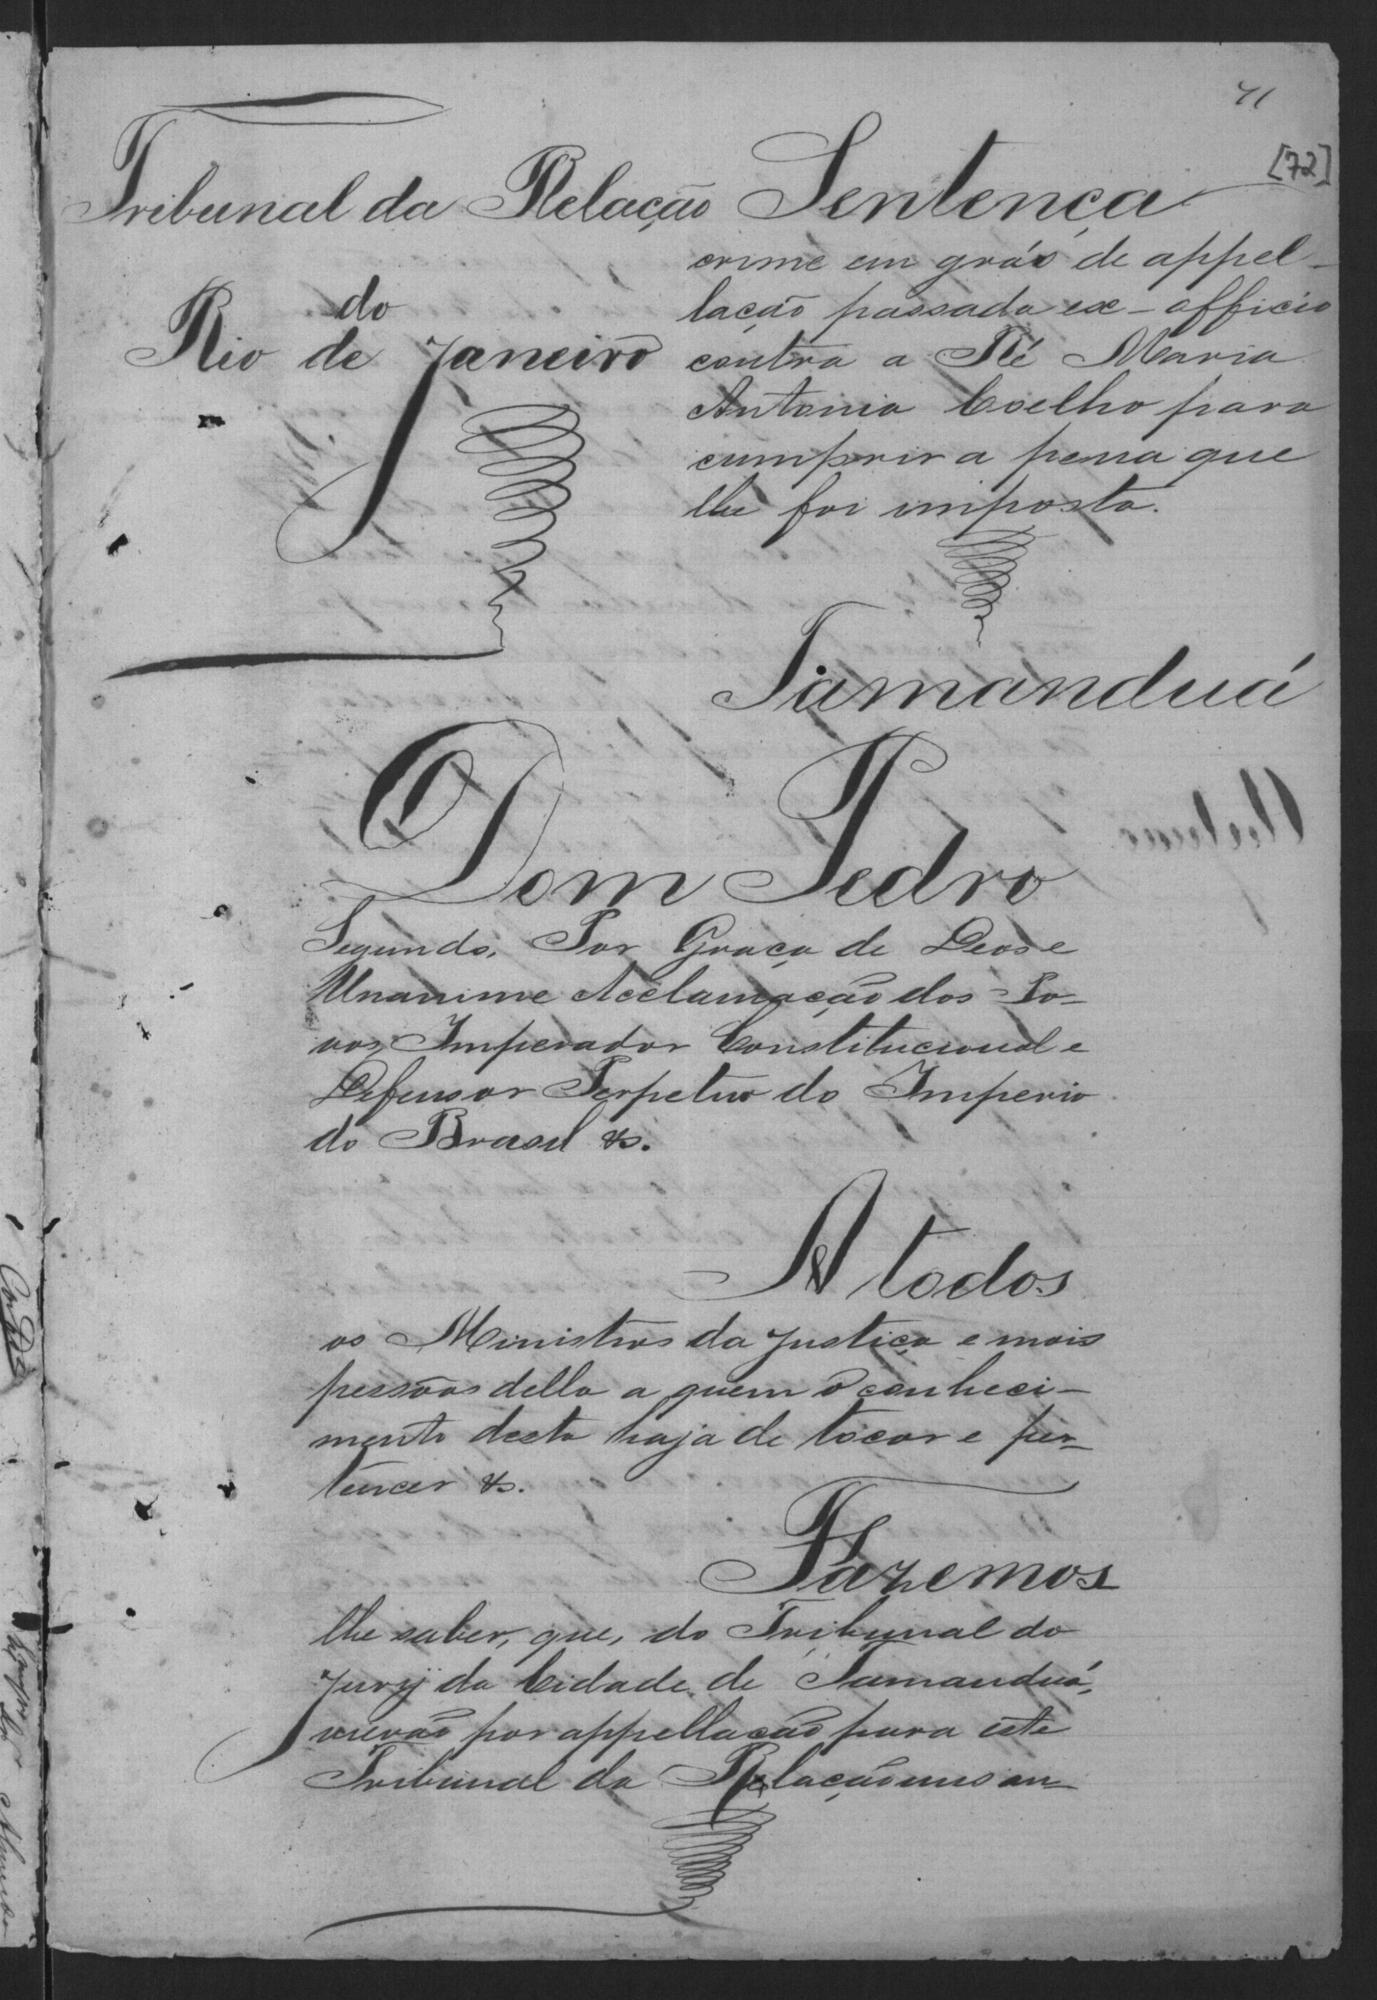 71
[72]
Tribunal da Relação
do
Rio de Janeiro
Sentença
crime em gráo de appel-
lação passada ex-officio
contra a Ré Maria
Antonia Coelho para
cumprir a pena que
lhe foi imposta.
Tamanduá
Dom Pedro
Segundo, Por Graça de Deos e
Unanime Acclamação dos Po-
vos, Imperador Constitucional e
Defensor Perpetuo do Imperio
do Brasil &.
A todos
os Ministros da Justiça e mais
pessôas della a quem o conheci-
mento desta haja de tocar e per-
tencer &.
Fazemos
lhe saber, que, do Tribunal do
Jury da Cidade de Tamanduá,
vierão por appellação para este
Tribunal da Relação uns au-